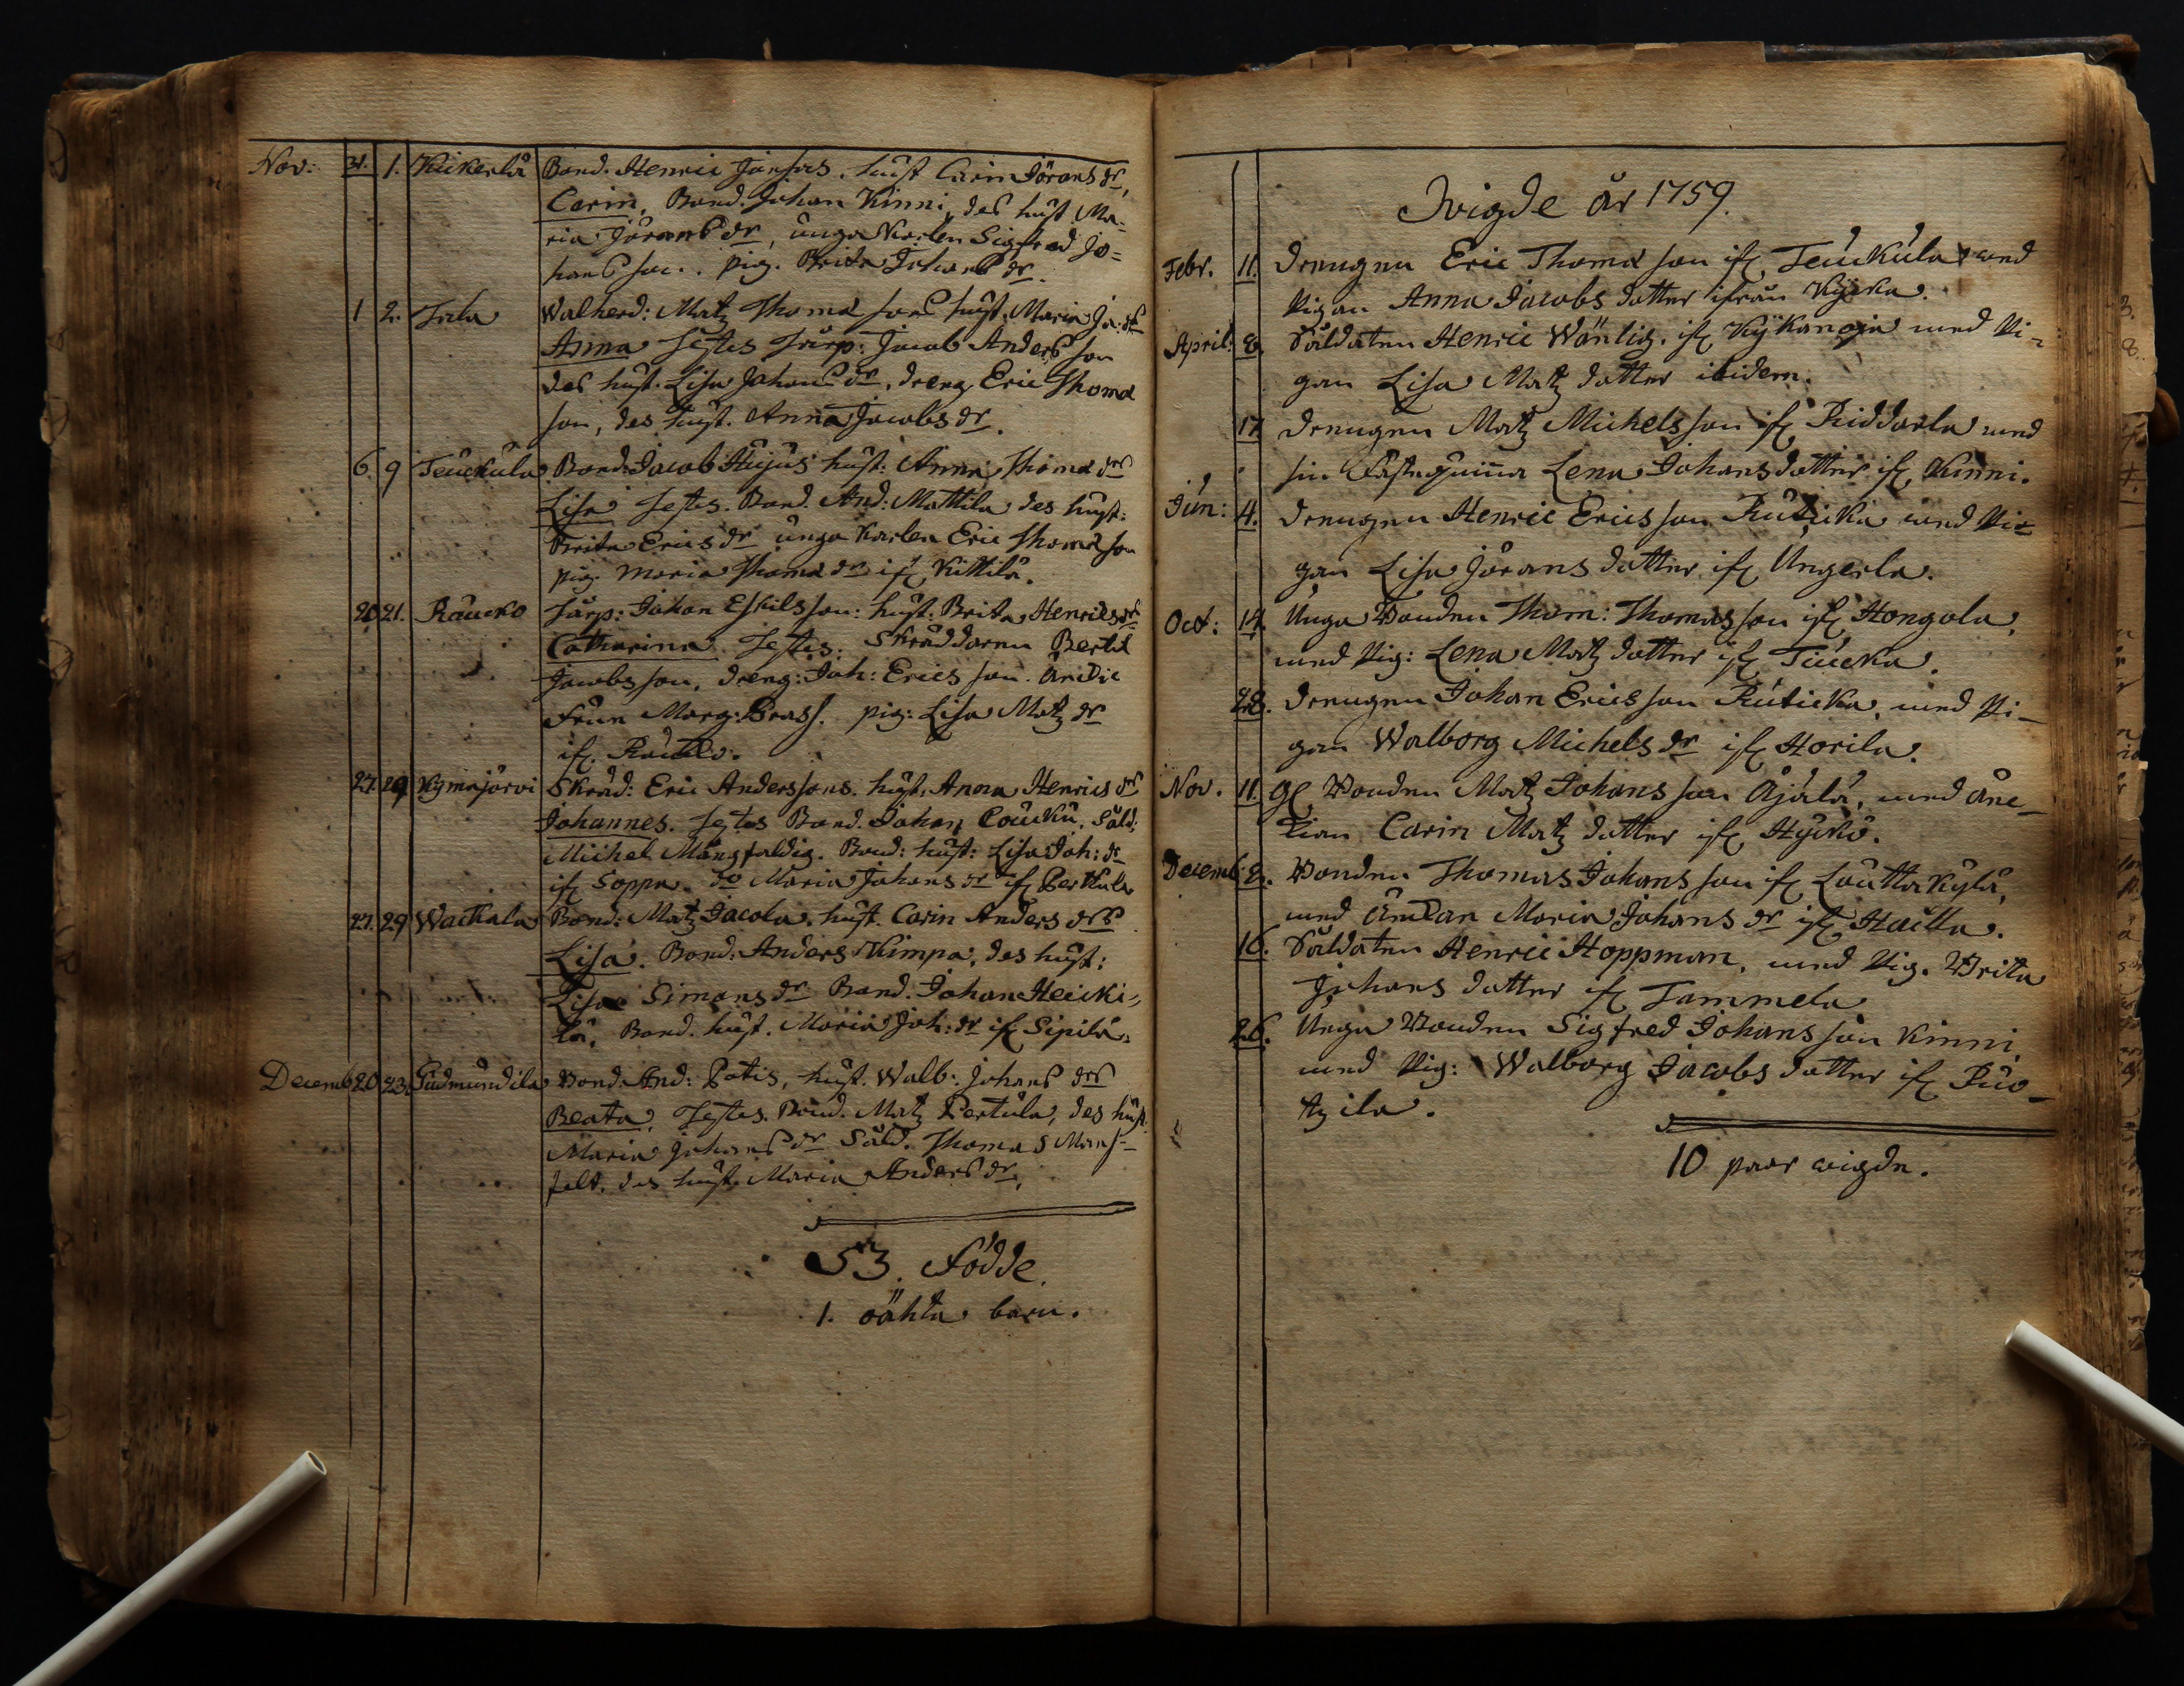 Nov: 31. 1. Kickerlä Bond. Henric Jönsias. hust Carin Jörans dr,
Carin, Bond. Johan Kinni, des hust. Ma-
ria Jörans dr, unga Karlen Sigfred Jo-
hans son. pig. Brita Johans dr.
1 2. Tala Walherd: Matz Thomæ sons hust. Maria Ja: dr
Anna Testes Torp: Jacob Anders son
des hust. Lisa Johans dr, dreng Eric Thomæ
son, des hust. Anna Jacobs dr.
6. 9 Teuckula Bond: Jacob Hujus hust: Anna Thomæ drs
Lisa Testes. Bond. And: Mattila des hust:
Brita Erics dr unga Karlen Eric Thomæ son
pig. Maria Thomæ dr if. Kittilä.
20 21. Raucko Torp: Johan Eskilsson: hust: Brita Henrics dr
Catharina Testes: Skräddaren Bertil
Jacobs son, dreng: Joh: Erics son.
Frun Marg: Brass. pig: Lisa Matz dr
if. Raucko.
27. 29 Kymäjärvi Skräd: Eric Anderssons. hust. Anna Henrics dr
Johannes. Testes Bond. Johan Coucku, Såld:
Michel Mångfaldig. Bond: hust: Lisa Joh: dr
if Soppa. do Maria Johans dr if Perttula
27. 29 Wackala Bond: Matz Jacola, hust. Carin Anders drs
Lisa. Bond: Anders Kimpa, des hust:
Lisa Simons dr Bond. Johan Heicki-
lä, Bond. hust. Maria Joh: dr if Sipilä.
Decemb 20 23. Gudmundila Bond. And: Potis, hust. Walb: Johans drs
Beata, Testes. Bond. Matz Pertula, des hust.
Maria Johans dr Såld. Thomas Mans-
felt, des hust. Maria Anders dr,
53. Födde.
1. oähta barn.
Iwigde år 1759.
Febr. 11. Drengen Eric Thomæ son if Teuckula med
Pigan Anna Jacobs dotter ifrån Kycka.
April: 8. Såldaten Henric Wänlig. if Kyckanoja med Pi-
gan Lisa Matz dotter ibidem.
17 Drengen Matz Michelsson if Riddarla med
sin Fästequinna Lena Johansdotter if Kinni.
Jun: 4. Drengen Henric Ericsson Ruticka med Pi-
gan Lisa Jörans dotter if Ungerla.
Oct: 14. Unga Bonden Thom: Thomasson if Hongola,
med Pig: Lena Matz dotter if Tiucka.
28. Drengen Johan Ericsson Ruticka, med Pi-
gan Walborg Michels dr if Horila.
Nov. 11. gl Bonden Matz Johans son Äjälä, med änc-
kian Carin Matz dotter if Hyckö.
Decemb 2. Bonden Thomas Johans son if Louttakylä,
med änckan Maria Johans dr if Hailla.
16. Såldaten Henric Hoppman, med Pig. Brita
Johans dotter if Tammela
26. Unga Bonden Sigfred Johans son Kinni,
med Pig: Walborg Jacobs dotter if Ruo-
tzila.
10 paar wigde.